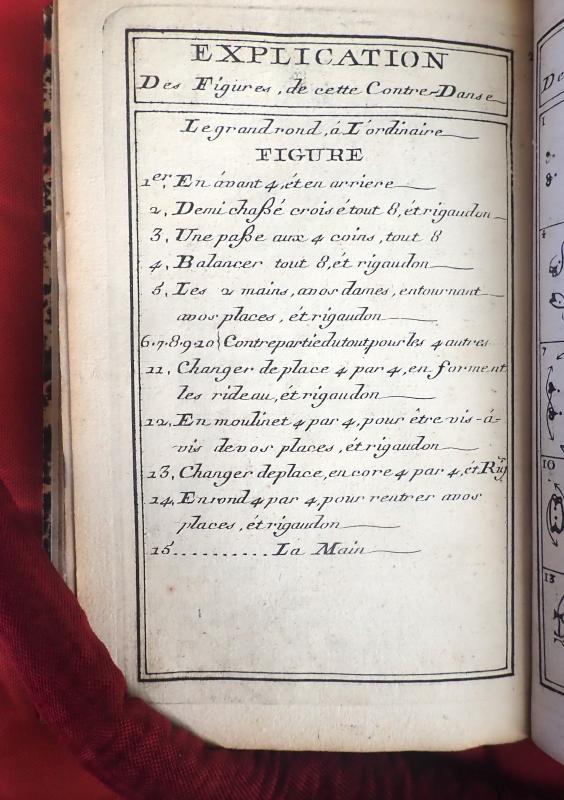 EXPLICATION
Des Figures, de cette Contre-Danse
Le grand rond, á L'ordinaire
FIGURE
1er, En ávant 4, ét en arriere
2, Demi chaßé croisé tout 8, ét rigaudon
3, Une paße aux 4 coins, tout 8
4, Balancer tout 8, ét rigaudon
5, Les 2 mains, avos dames, entournant
avos places, ét rigaudon
6.7.8.9.10} Contrepartiedutoutpour les 4 autres
11, Changer de place 4 par 4, en forment
les rideau, ét rigaudon
12, En moulinet 4 par 4, pour être vis-á-
vis devos places, ét rigaudon
13, Changer deplace, encore 4 par 4, ét Rig
14, En rond 4 par 4, pour rentrer avos
places, ét rigaudon
15.......... La Main
De
1
4
7
10
13